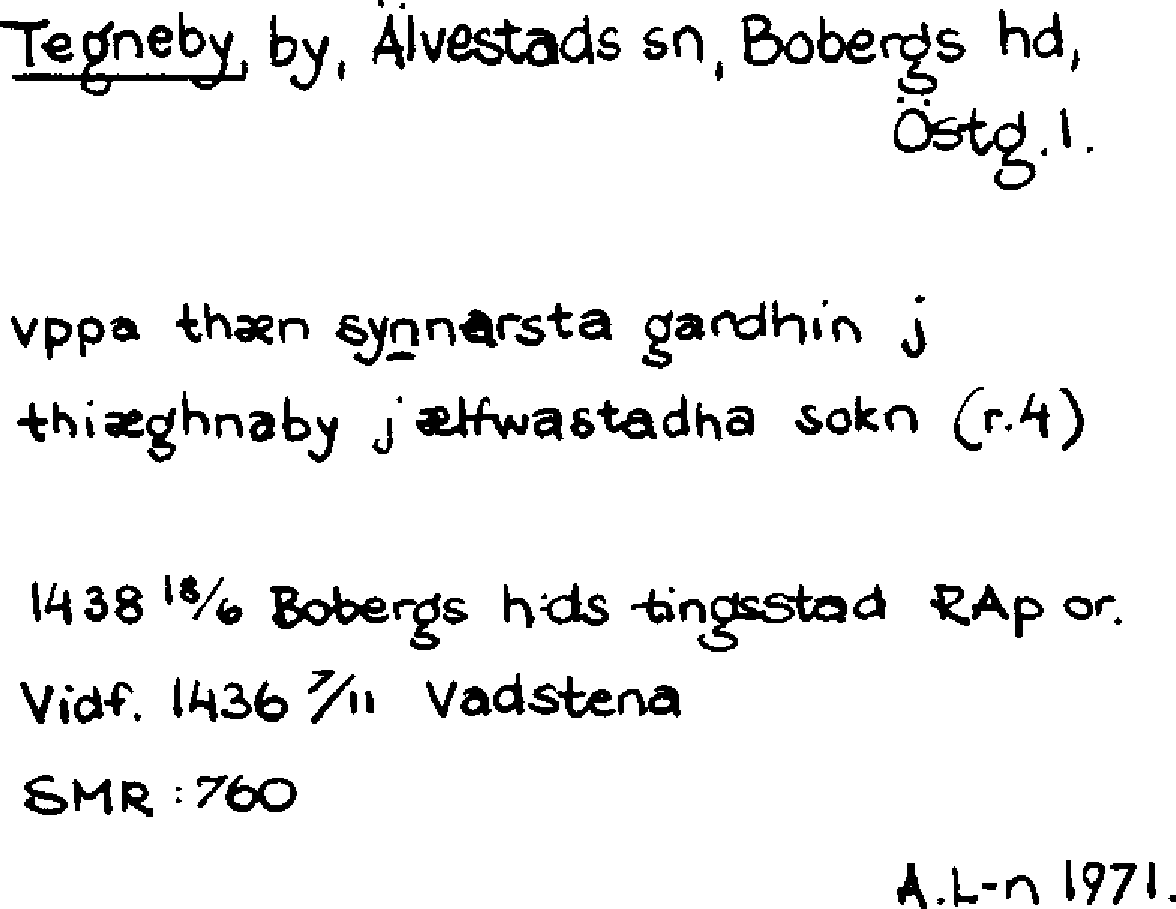 Tegneby, by, Älvestads sn, Bobergs hd,
Östg.l.
vppa thæn synnarsta gardhin j
thiæghnaby j ælfwastadha sokn (r.4)
1438 18/6 Bobergs h:ds tingsstad RAp or.
Vidf. 1436 7/11 Vadstena
SMR : 760
A.L-n 1971.